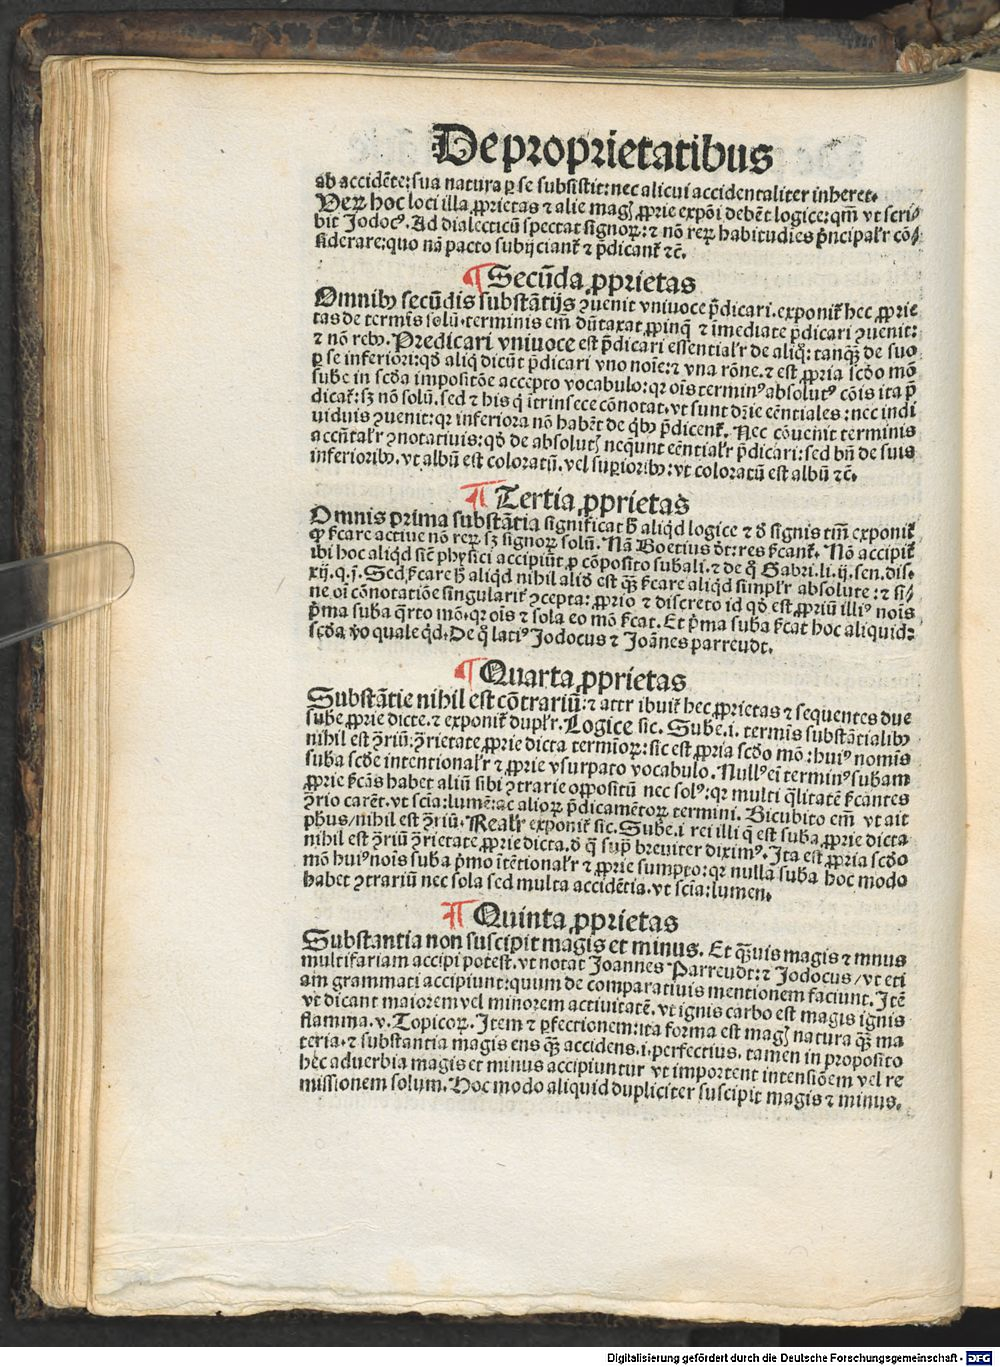 De proprietatibus
ab accidēte: sua natura ꝑ se subsistit: nec alicui accidentaliter inheret.
Ver hoc loci illa ꝓprietas ⁊ alie magꝭ ꝓprie expōi debēt logice: qm̄ vt scri⸗
bit Jodocꝰ. Ad dialecticū spectat signoꝝ: ⁊ nō reꝝ habitudies pͥncipalʼr cō⸗
siderare: quo nā pacto subijciant̃ ⁊ p̄dicant̃ ⁊c̄.
¶ Secūda ꝓprietas
Omnibꝫ secūdis substātijs ꝯuenit vniuoce p̄dicari. exponit̃ hec ꝓprie
tas de termīs solū. terminis em̄ dūtaxat ꝓpinq̄ ⁊ īmediate p̄dicari ꝯuenit:
⁊ nō rebꝫ. Predicari vniuoce est p̄dicari essentialʼr de aliq̊: tanqꝫ̄ de suo
ꝑ se inferiori: qd̓ aliq̄ dicūt p̄dicari vno noīe: ⁊ vna rōne. ⁊ est ꝓpria scd̓o mō
sube in scd̓a impositōe accepto vocabulo: qꝛ oīs terminꝰ absolutꝰ cōis ita p̄
dicat̃: sꝫ nō solū. sed ⁊ his q̄ ītrinsece cōnotat. vt sunt dr̄ie eēntiales: nec indi
uiduis ꝯuenit: qꝛ inferiora nō habēt de qͥbꝫ p̄dicent̃. Nec cōuenit terminis
accn̄talʼr ꝯnotatiuis: qd̓ de absolutꝭ neq̄unt eēntialʼr p̄dicari: sed bn̄ de suis
inferioribꝫ. vt albū est coloratū. vel suꝑioribꝫ: vt coloratū est albū ⁊c̄.
¶ Tertia ꝓprietas
Omnis prima substātia significat h̓ aliqͥd logice ⁊ d̓ signis tm̄ exponit̃
ꝓ ſcare actiue nō reꝝ sꝫ signoꝝ solū. Nā Boetius dt̄: res ſcant̃. Nō accipit̃
ibi hoc aliqͥd sic̄ physici accipiūt ꝓ cōposito subali. ⁊ de q̊ Gabri. li. ij. sen. dis.
xij. q. j. Sed ſcare h̓ aliqͥd nihil aliđ est qꝫ̄ ſcare aliqͥd simplʼr absolute: ⁊ si⸗
ne oī cōnotatiōe singularit̃ ꝯcepta: ꝓprio ⁊ discreto id qd̓ est ꝓpriū illiꝰ noīs
pͥma suba q̄rto mō. qꝛ oīs ⁊ sola eo mō ſcat. Et pͥma suba ſcat hoc aliquid:
scd̓a ꝟo quale qͥd. De q̊ latiꝰ Jodocus ⁊ Joānes parreudt.
¶ Quarta ꝓprietas
Substātie nihil est cōtrariū: ⁊ attr ibuit̃ hec ꝓprietas ⁊ sequentes due
sube ꝓprie dicte. ⁊ exponit̃ duplʼr. Logice sic. Sube .i. termīs substātialibꝫ
nihil est ꝯriū: ꝯrietate ꝓprie dicta termioꝝ: sic est ꝓpria scd̓o mō: huiꝰ nomīs
suba scd̓e intentionalʼr ⁊ ꝓprie vsurpato vocabulo. Nullꝰ em̄ terminꝰ subam
ꝓprie ſcās habet aliū sibi ꝯtrarie oppositū nec solꝰ: qꝛ multi q̄litatē ſcantes
ꝯrio carēt. vt scīa: lumē: ac alioꝝ p̄dicamētoꝝ termini. Bicubito em̄ vt ait
phus/ nihil est ꝯriū. Realʼr exponit̃ sic. Sube .i. rei illi q̄ est suba ꝓprie dicta
nihil est ꝯriū ꝯrietate ꝓprie dicta. d̓ q̄ supͣ breuiter diximꝰ. Ita est ꝓpria scd̓o
mō huiꝰ noīs suba pͥmo ītētionalʼr ⁊ ꝓprie sumpto: qꝛ nulla suba hoc modo
habet ꝯtrariū nec sola sed multa accidētia. vt scīa: lumen.
¶ Quinta ꝓprietas
Substantia non suscipit magis et minus. Et qꝫ̄uis magis ⁊ mnus
multifariam accipi potest. vt notat Joannes Parreudt: ⁊ Jodocus/ vt eti
am grammati accipiunt: quum de comparatiuis mentionem faciunt. Itē
vt dicant maiorem vel minorem actiuitatē. vt ignis carbo est magis ignis
flamma. v. Topicoꝝ. Item ⁊ ꝑfectionem: ita forma est magꝭ natura qꝫ̄ ma
teria. ⁊ substantia magis ens qꝫ̄ accidens .i. perfectius. tamen in proposito
hec aduerbia magis et minus accipiuntur vt importent intensiōem vel re
missionem solum. Hoc modo aliquid dupliciter suscipit magis ⁊ minus.
Digitalisierung gefördert durch die Deutsche Forschungsgemeinschaft - DFG